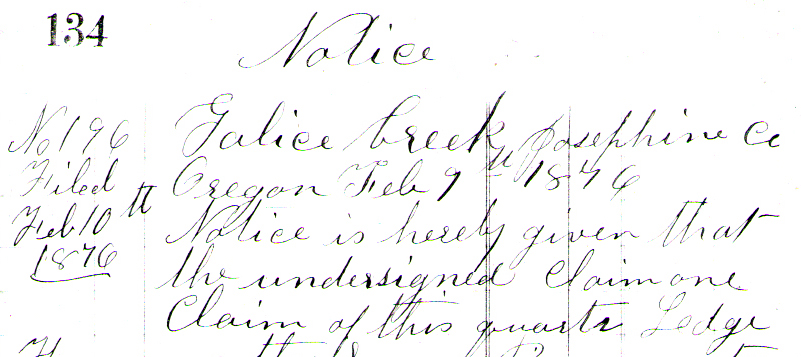 134
Notice
No 196
Filed
Feb 10th
1876
Galice Creek Josephine Co
Oregon Feb 9th 1876
Notice is hereby given that
the undersigned Claim one
Claim of this quartz Ledge